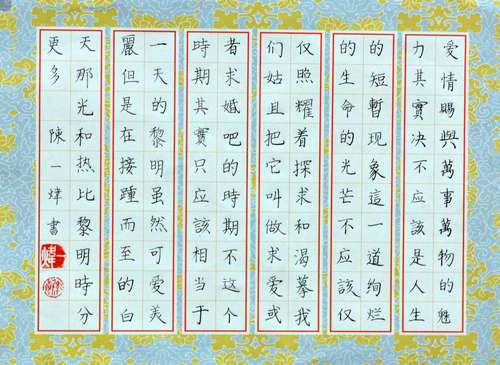 愛情賜與萬事萬物的魅
力其實决不应該是人生
的短暫现象這一道绚烂
的生命的光芒不应該仅
仅照耀着探求和渴摹我
们姑且把它叫做求爱或
者求婚吧的時期不这个
時期其實只应該相当于
一天的黎明虽然可爱美
麗但是在接踵而至的白
天那光和热比黎明時分
更多 陳一煒書